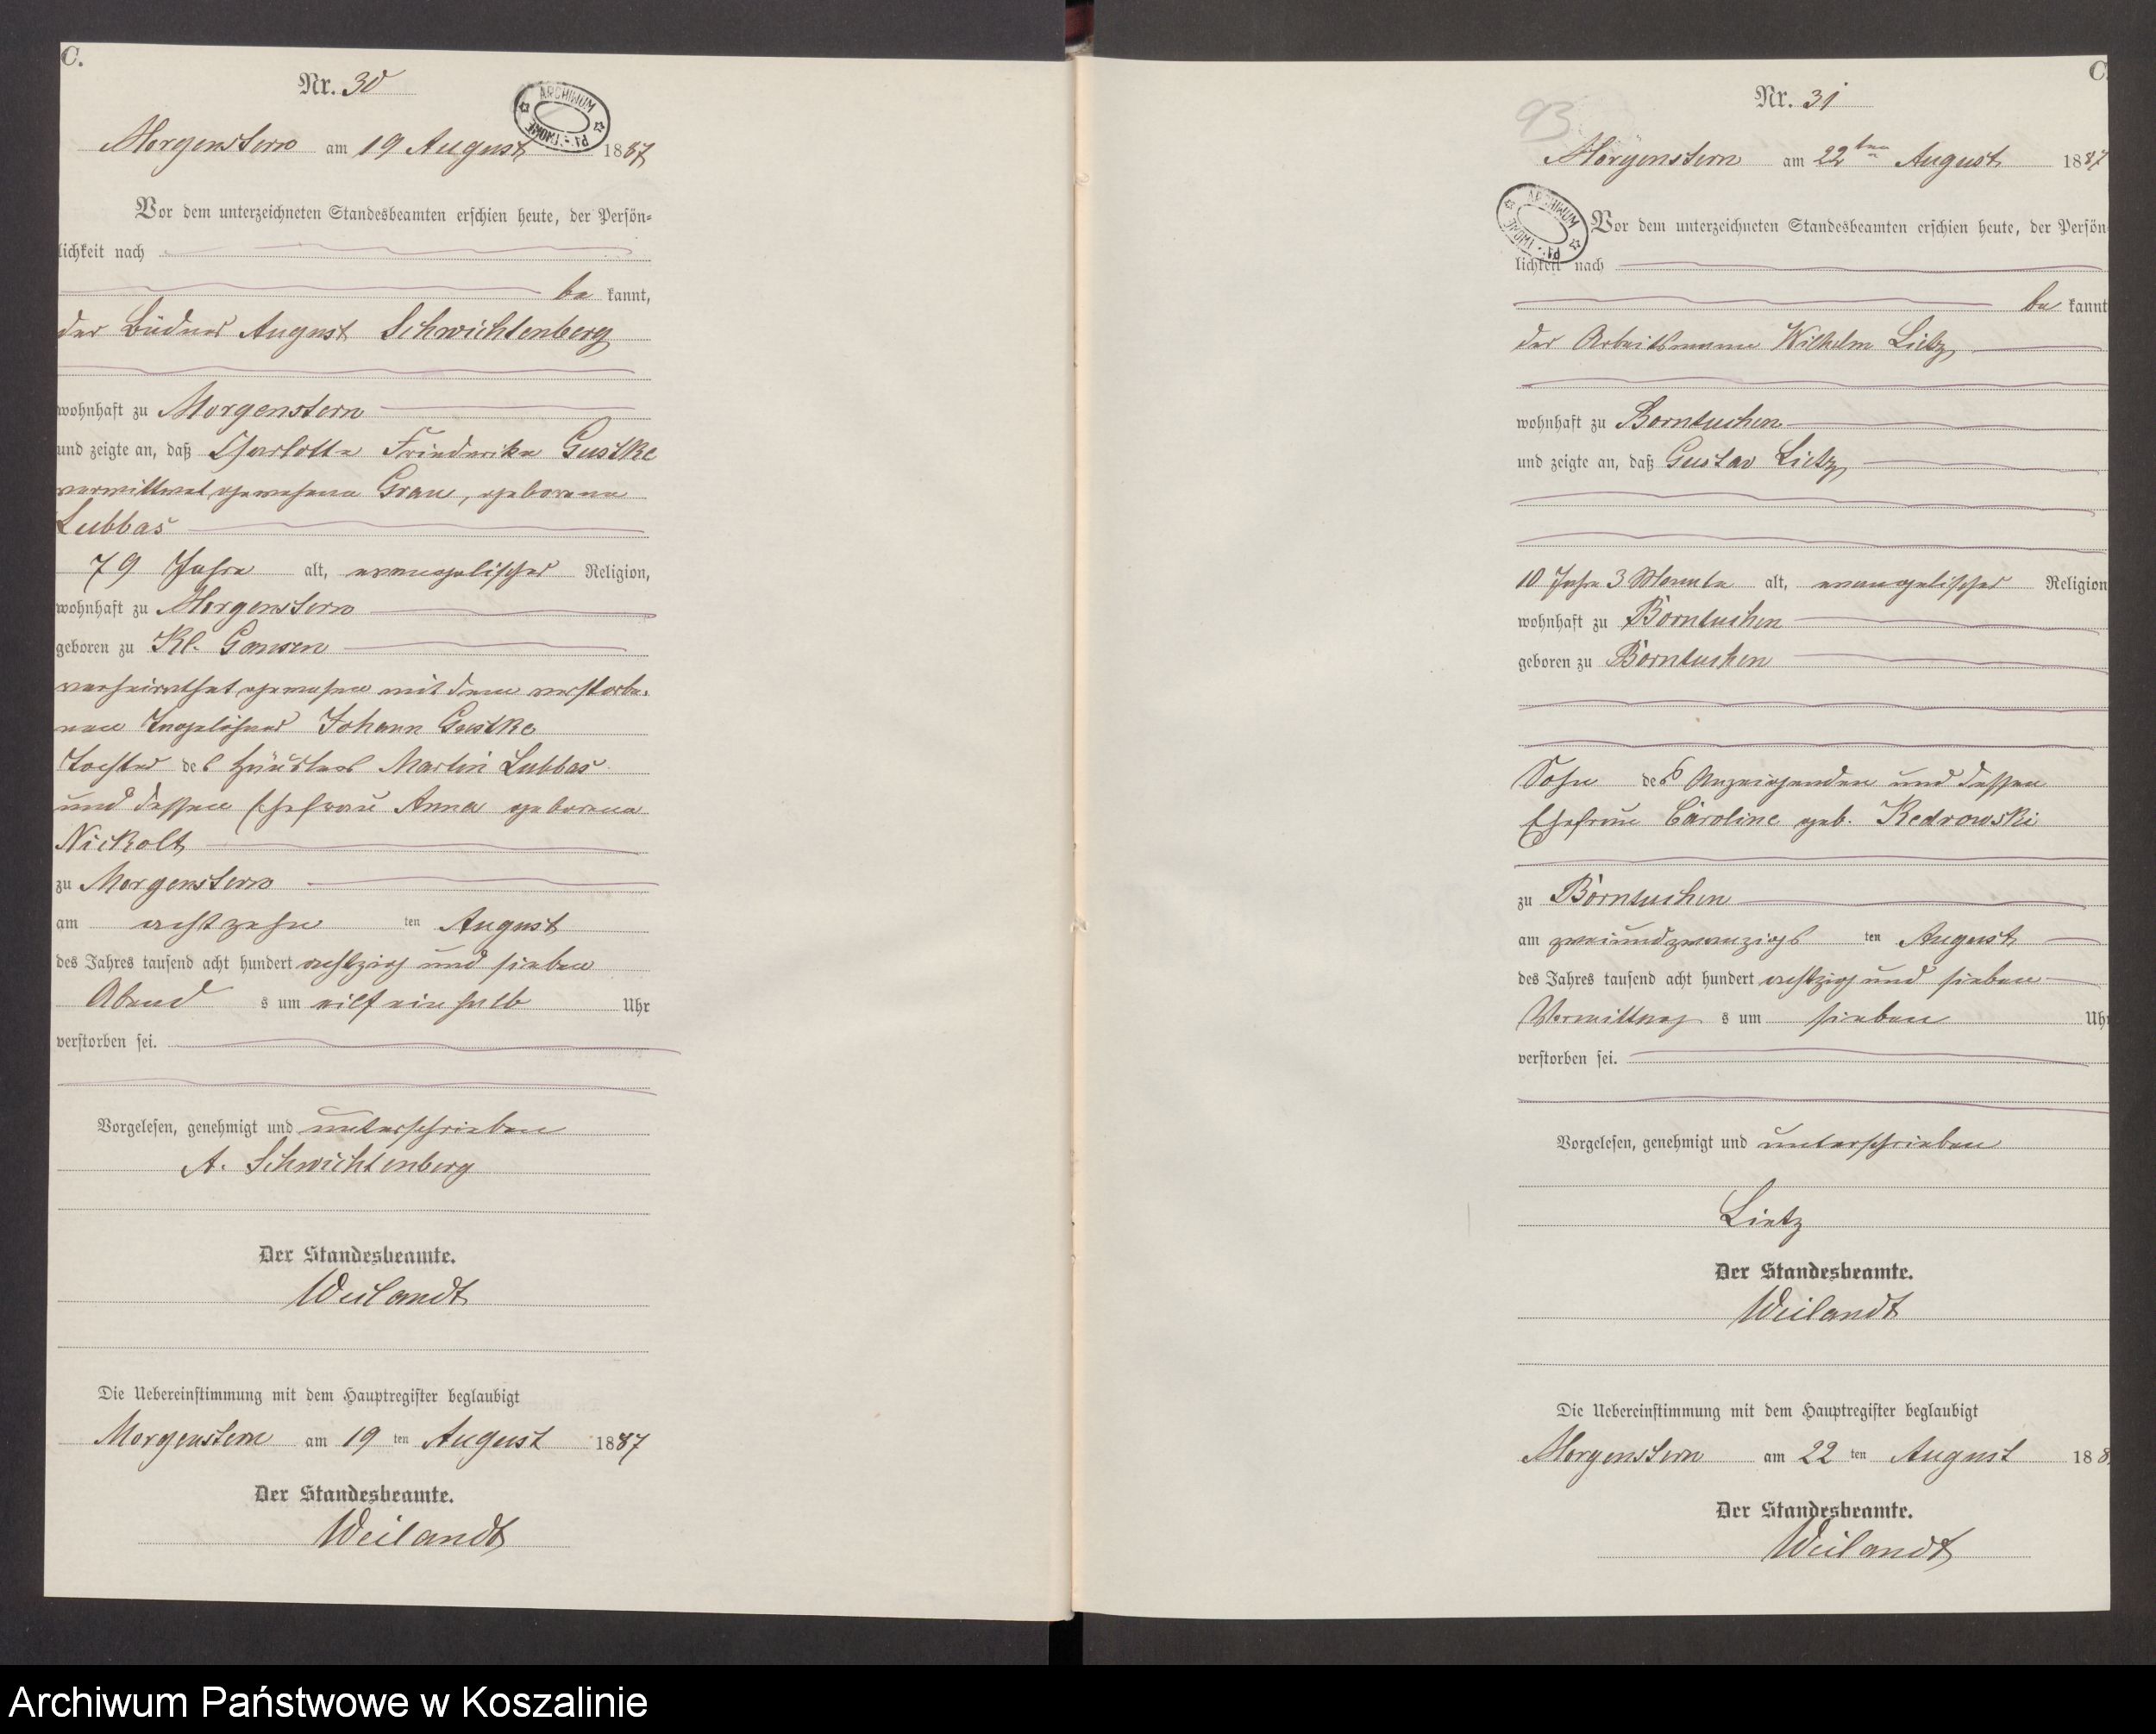 C.
Nr. 30
ARCHIWUM
Morgenstern am 19 August 1887
Vor dem unterzeichneten Standesbeamten erschien heute, der Persön-
lichkeit nach
be kannt,
der Büdner August Schwichtenberg
wohnhaft zu Morgenstern
und zeigte an, daß Charlotte Friederike Gustke
verwittwet gewesene Grau, geborene
Lubbas
79 Jahre alt, evangelischer Religion,
wohnhaft zu Morgenstern
geboren zu Kl. Gansen
verheirathet gewesen mit dem verstorbe-
nen Tagelöhner Johann Gustke
Tochter des Häuslers Martin Lubbas
und dessen Ehefrau Anna geborene
Nickolt
zu Morgenstern
am achtzehn ten August
des Jahres tausend acht hundert achtzig und sieben
Abend s um eilf einhalb Uhr
verstorben sei.
Vorgelesen, genehmigt und unterschrieben
A. Schwichtenberg
Der Standesbeamte.
Weilandt
Die Uebereinstimmung mit dem Hauptregister beglaubigt
Morgenstern am 19 ten August 1887
Der Standesbeamte.
Weilandt
C.
Nr. 31
93
Morgenstern am 22ten August 1887
ARCHIWUM
Vor dem unterzeichneten Standesbeamten erschien heute, der Persön
lichkeit nach
be kannt
der Arbeitsmann Wilhelm Lietz
wohnhaft zu Borntuchen
und zeigte an, daß Gustav Lietz
10 Jahre 3 Monate alt, evangelischer Religion
wohnhaft zu Borntuchen
geboren zu Borntuchen
Sohn des Anzeigenden und dessen
Ehefrau Caroline geb. Kedrowski
zu Borntuchen
am zweiundzwanzigs ten August
des Jahres tausend acht hundert achtzig und sieben
Vormittag s um sieben Uhr
verstorben sei.
Vorgelesen, genehmigt und unterschrieben
Lietz
Der Standesbeamte.
Weilandt
Die Uebereinstimmung mit dem Hauptregister beglaubigt
Morgenstern am 22 ten August 188
Der Standesbeamte.
Weilandt
Archiwum Państwowe w Koszalinie